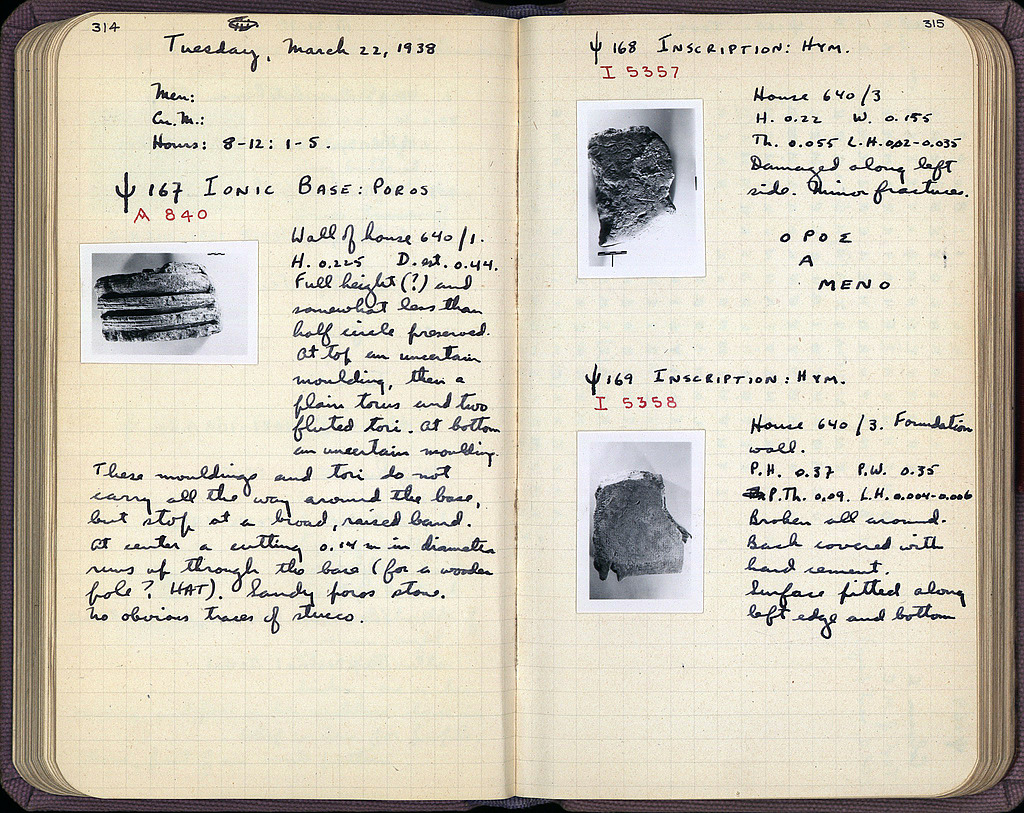 314
Tuesday, March 22, 1938
Men:
Cu. M.:
Hours: 8-12: 1-5.
Ψ 167 IONIC BASE: POROS
A 840
Wall of house 640/1.
H. 0.225 D. est. 0.44.
Full height (?) and
somewhat less than
half circle preserved.
At top an uncertain
moulding, then a
plain torus and two
fluted tori. At bottom
an uncertain moulding.
These mouldings and tori do not
carry all the way around the base,
but stop at a broad, raised band.
At center a cutting 0.14 m in diameter
runs up through the base (for a wooden
pole? HAT). Sandy poros stone.
No obvious traces of stucco.
315
Ψ 168 INSCRIPTION: HYM.
I 5357
House 640/3
H. 0.22 W. 0.155
Th. 0.055 L.H. 0.02-0.035
Damaged along left
side. Minor fractures.
ΟΡΟΣ
Α
ΜΕΝΟ
Ψ 169 INSCRIPTION: HYM.
I 5358
House 640/3. Foundation
wall.
P.H. 0.37 P.W. 0.35
P.Th. 0.09. L.H. 0.004-0.006
Broken all around.
Back covered with
hard cement.
Surface pitted along
left edge and bottom